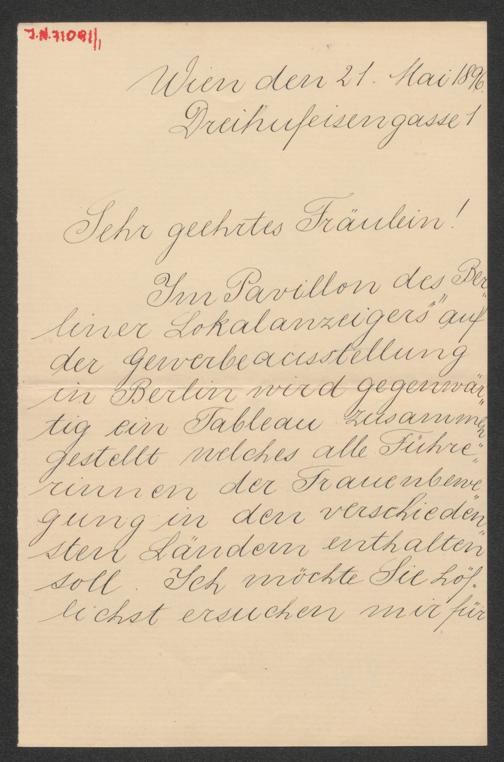 J.N. 71091/1
Wien den 21. Mai 1896.
Dreihufeisengasse 1
Sehr geehrtes Fräulein!
Im Pavillon des Ber„
liner Lokalanzeigers" auf
der Gewerbeausstellung
in Berlin wird gegenwär„
tig ein Tableau zusammen
gestellt welches alle Führe„
rinnen der Frauenbewe„
gung in den verschieden„
sten Ländern enthalten
soll. Ich möchte Sie höf„
lichst ersuchen mir für